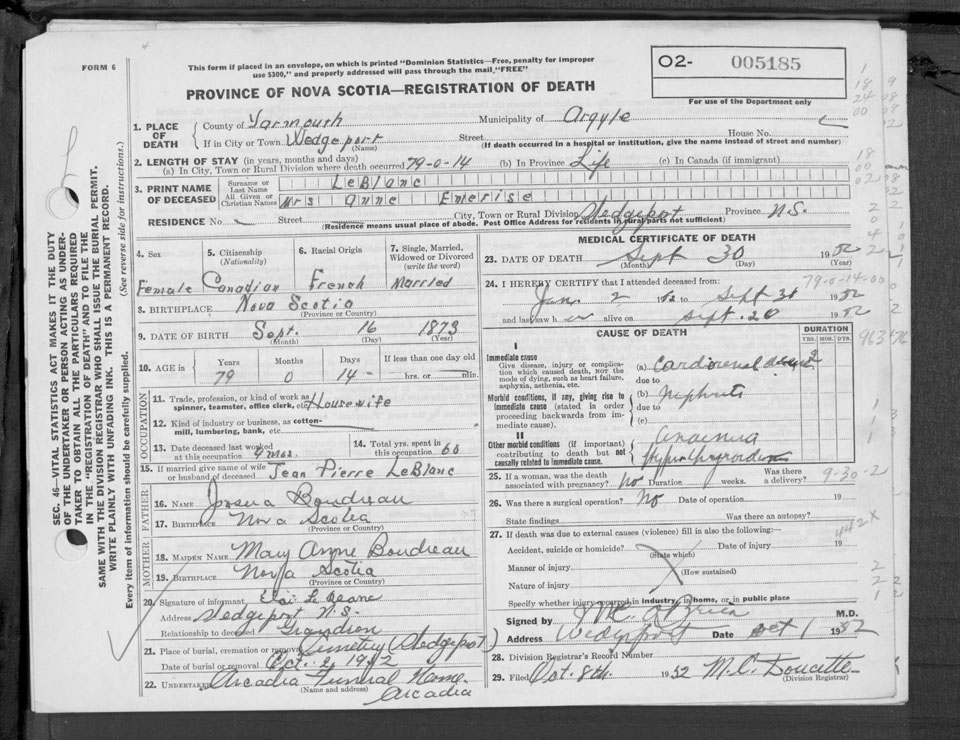 FORM 6
This form if placed in an envelope, on which is printed "Dominion Statistics—Free, penalty for improper
use $300," and properly addressed will pass through the mail "FREE"
O2- 005185
For use of the Department only
PROVINCE OF NOVA SCOTIA—REGISTRATION OF DEATH
1. PLACE OF DEATH
County of Yarmouth Municipality of Argyle
If in City or Town Wedgeport Street House No.
(Name) (If death occurred in a hospital or institution, give the name instead of street and number)
2. LENGTH OF STAY (in years, months and days)
(a) In City, Town or Rural Division where death occurred 79-0-14 (b) In Province Life (c) In Canada (if immigrant)
3. PRINT NAME OF DECEASED
Surname or Last Name LeBlanc
All Given or Christian Names Mrs Anne Emerise
RESIDENCE No. Street City, Town or Rural Division Wedgeport Province N.S.
(Residence means usual place of abode. Post Office Address for residents in rural parts not sufficient)
4. Sex
Female
5. Citizenship
(Nationality)
Canadian
6. Racial Origin
French
7. Single, Married, Widowed or Divorced
(write the word)
Married
8. BIRTHPLACE Nova Scotia
(Province or Country)
9. DATE OF BIRTH Sept. 16 1873
(Month) (Day) (Year)
10. AGE in
Years Months Days If less than one day old
79 0 14 hrs. or min.
OCCUPATION
11. Trade, profession, or kind of work as
spinner, teamster, office clerk, etc. Housewife
12. Kind of industry or business, as cotton-
mill, lumbering, bank, etc.
13. Date deceased last worked
at this occupation 4 mos.
14. Total yrs. spent in
this occupation 60
15. If married give name of wife
or husband of deceased Jean Pierre LeBlanc
FATHER
16. NAME Boudreau
17. BIRTHPLACE Nova Scotia
(Province or Country)
MOTHER
18. MAIDEN NAME Mary Anne Boudreau
19. BIRTHPLACE Nova Scotia
(Province or Country)
20. Signature of informant
Address Wedgeport N.S.
Relationship to deceased Grandson
21. Place of burial, cremation or removal Cemetery (Wedgeport)
Date of burial or removal Oct. 2, 1952
22. Undertaker Arcadia Funeral Home
(Name and address)
Arcadia
MEDICAL CERTIFICATE OF DEATH
23. DATE OF DEATH Sept 30 1952
(Month) (Day) (Year)
24. I HEREBY CERTIFY that I attended deceased from: 79-0-14-00
Jan. 2 1952 to Sept 30 1952
and last saw her alive on Sept. 20 1952
CAUSE OF DEATH
DURATION
YRS. MOS. DYS.
I
Immediate cause
Give disease, injury or complica-
tion which caused death, NOT the
mode of dying, such as heart failure,
asphyxia, asthenia, etc.
(a) Cardiorenal
due to
Morbid conditions, if any, giving rise to
immediate cause (stated in order
proceeding backwards from im-
mediate cause).
(b) Nephritis
due to
(c)
II
Other morbid conditions (if important)
contributing to death but not
causally related to immediate cause.
Anaemia
25. If a woman, was the death
associated with pregnancy? No Duration weeks. Was there a delivery? 9-30-2
26. Was there a surgical operation? No Date of operation 19
State findings Was there an autopsy?
27. If death was due to external causes (violence) fill in also the following:—
Accident, suicide or homicide? Date of injury 19
(State which)
Manner of injury
(How sustained)
Nature of injury
Specify whether injury occurred in industry, in home, or in public place
Signed by M.D.
Address Wedgeport Date Oct 1 1952
28. Division Registrar's Record Number
29. Filed Oct. 8th. 1952 M.C. Doucette
(Division Registrar)
SEC. 46—VITAL STATISTICS ACT MAKES IT THE DUTY
OF THE UNDERTAKER OR PERSON ACTING AS UNDER-
TAKER TO OBTAIN ALL THE PARTICULARS REQUIRED
IN THE "REGISTRATION OF DEATH" AND TO FILE THE
SAME WITH THE DIVISION REGISTRAR WHO SHALL ISSUE THE BURIAL PERMIT.
WRITE PLAINLY WITH UNFADING INK. THIS IS A PERMANENT RECORD.
Every item of information should be carefully supplied. (See reverse side for instructions.)